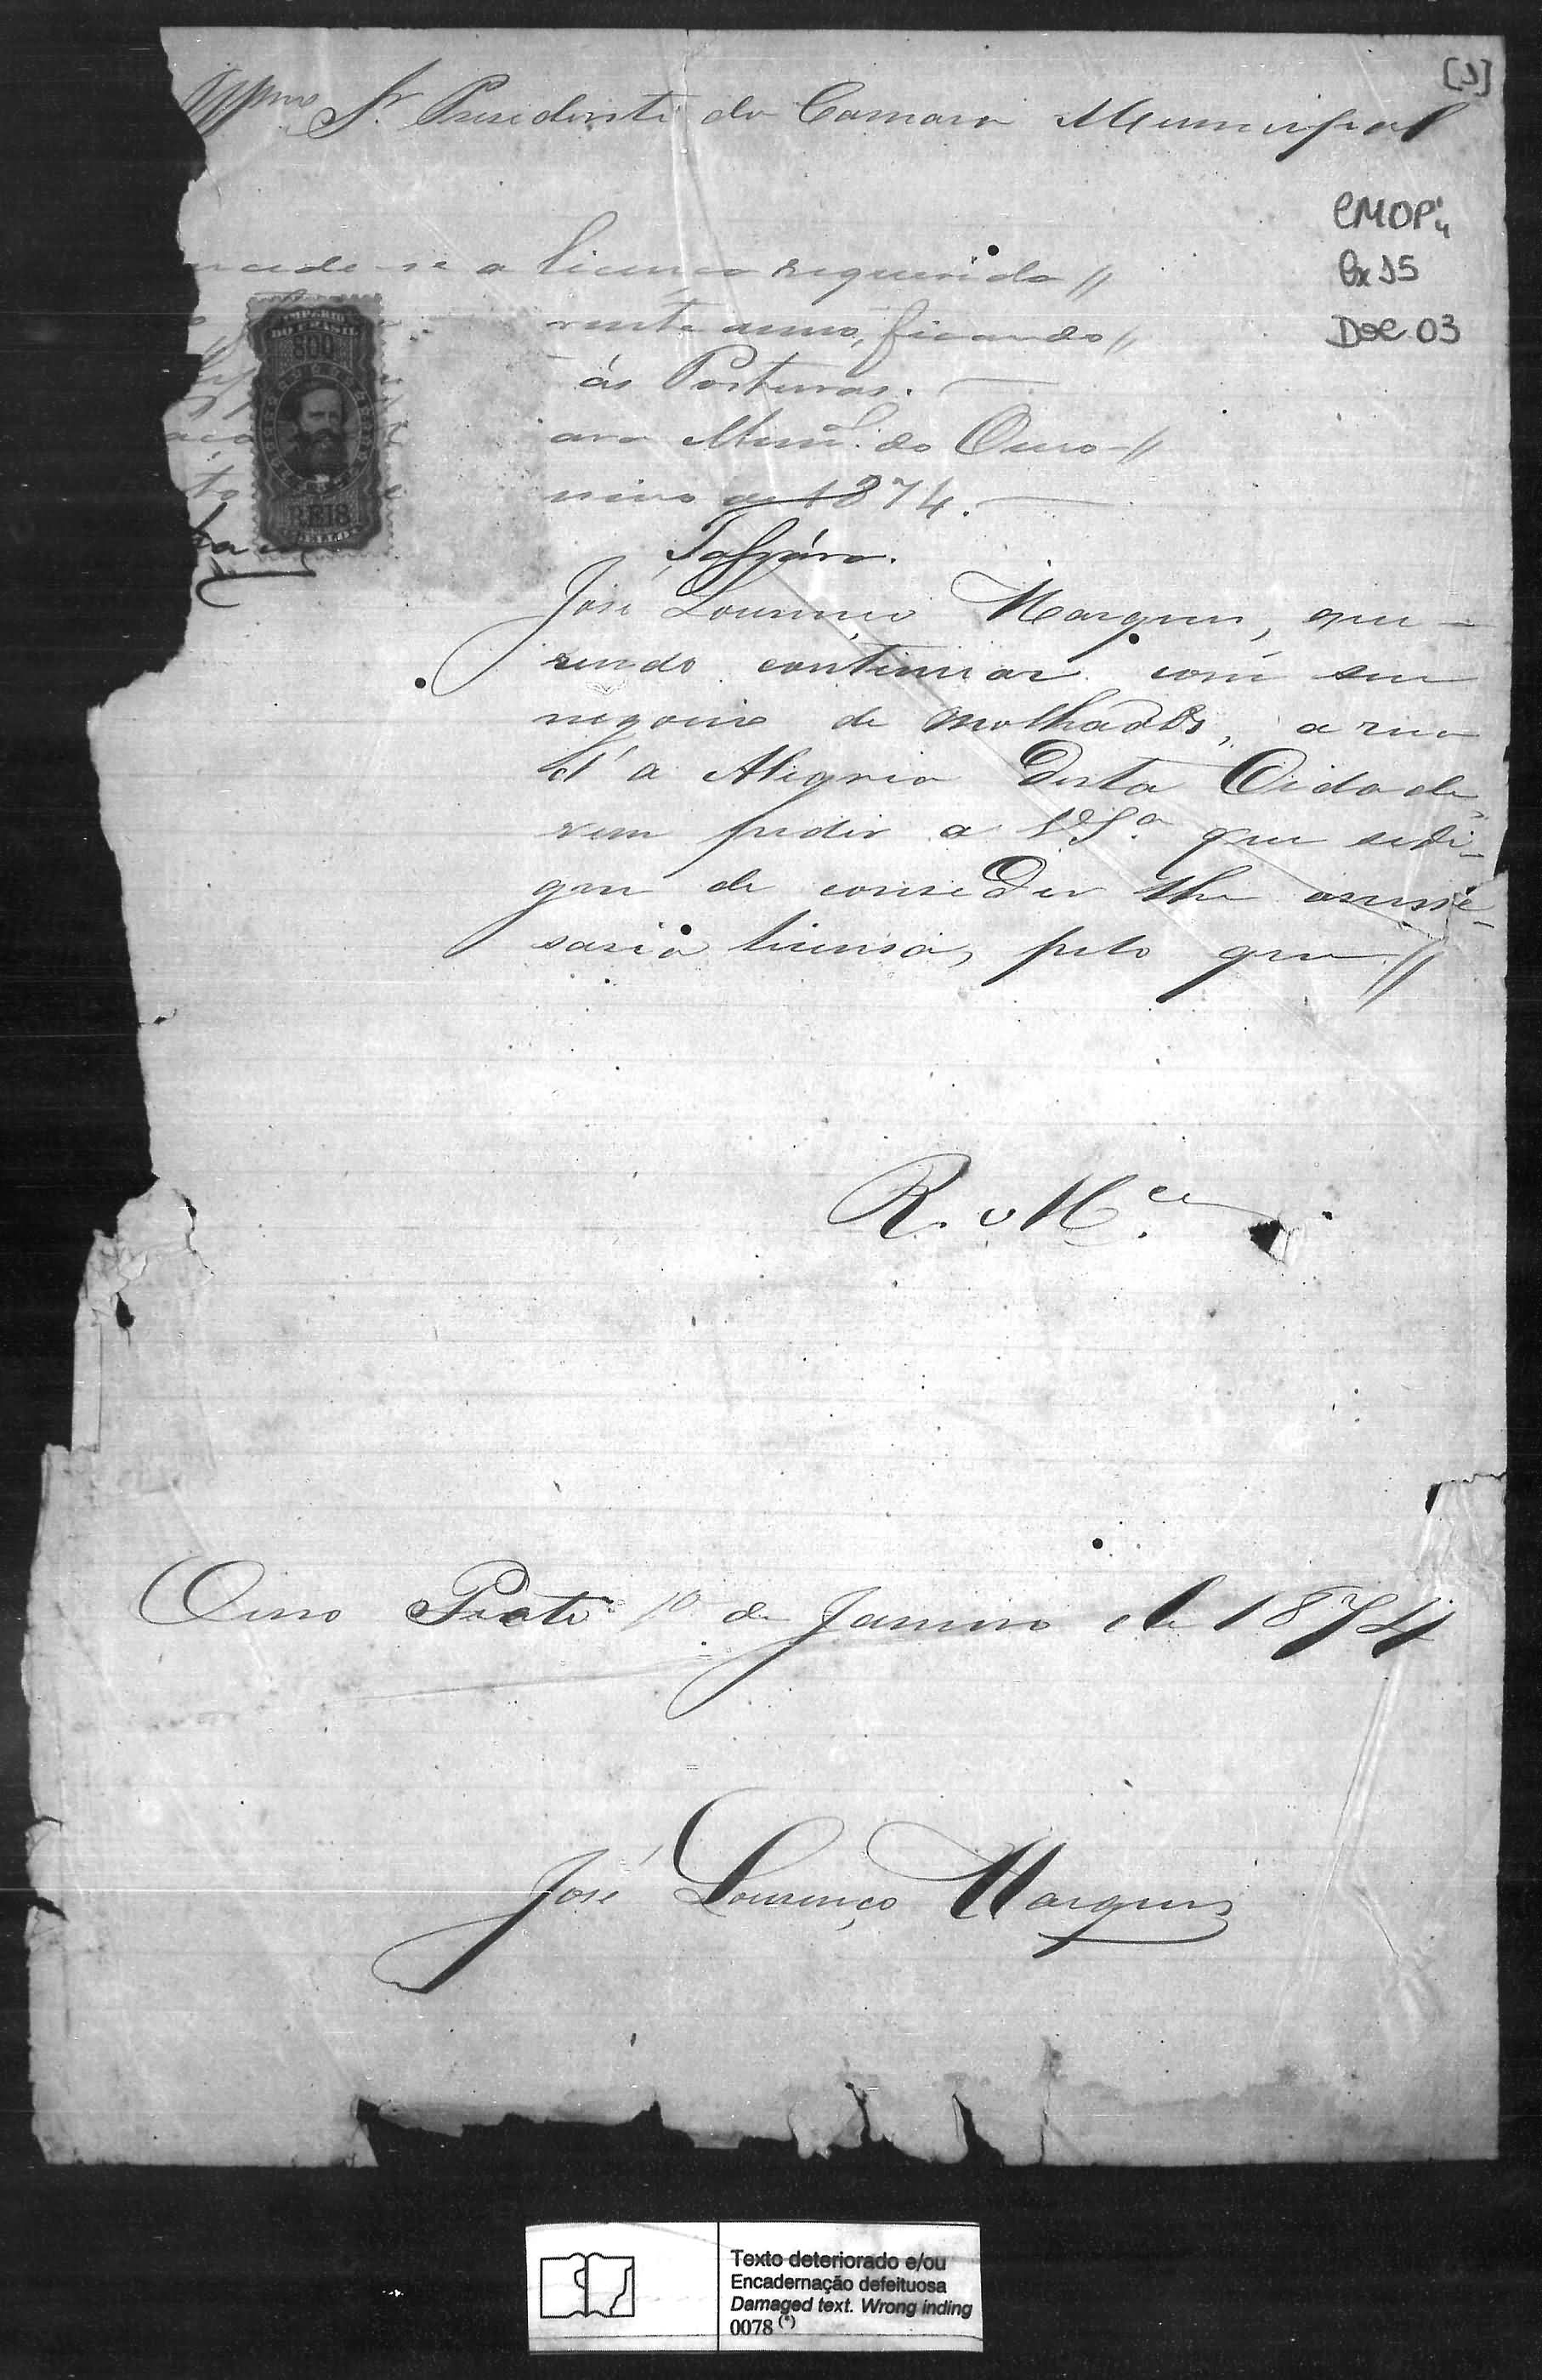 [1]
Illmo Sr. Presidente da Camara Municipal
CMOP
Cx 15
Doc. 03
ncede-se a licença requerida //
rente anno, ficando //
ás Posturas.
ara Munal. do Ouro-//
neiro de 1874.
IMPERIO
DO BRASIL
800
REIS
José Lourenço Marques, que-
rendo continuar com seu
negocio de molhados, a rua
d'a Alegria desta Cidade,
vem pedir a V.Sa. que sedi-
gne de conseder lhe anesse-
saria lisensa, pelo que //
R. Mce.
Ouro Preto 1o de Janeiro de 1874
José Lourenço Marques
Texto deteriorado e/ou
Encadernação defeituosa
Damaged text. Wrong inding
0078 (*)